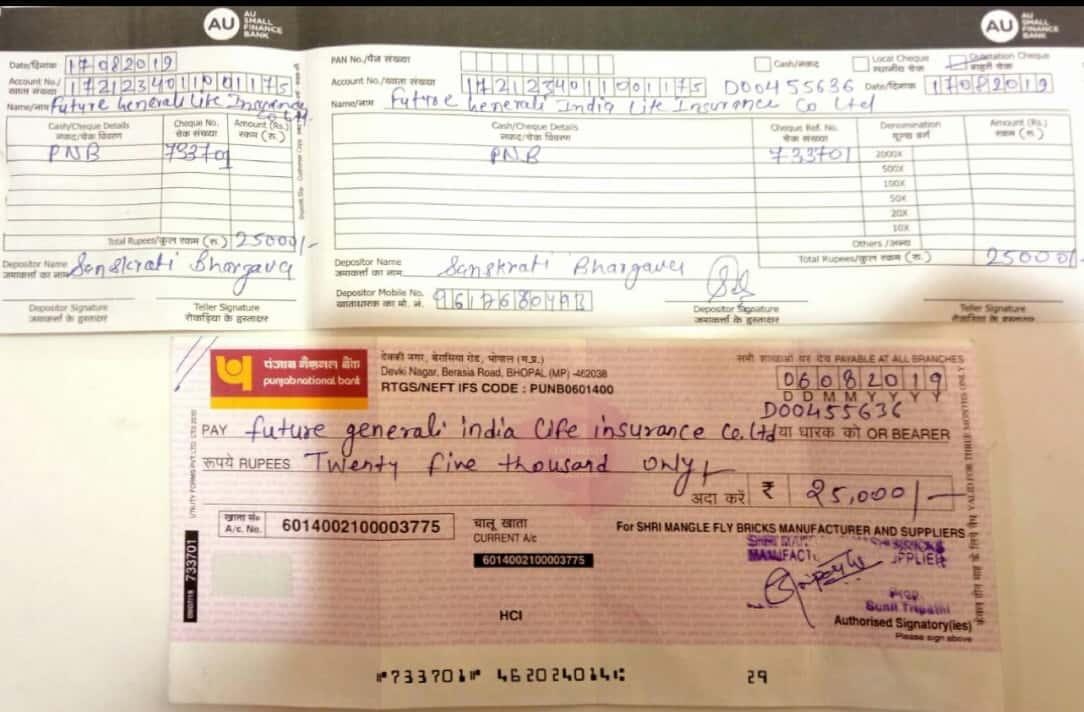 AU
AU
SMALL
FINANCE
BANK
AU
AU
SMALL
FINANCE
BANK
Date/दिनांक 17082019
Account No./ खाता संख्या 1721234011001175
Name/नाम Future Generali Life Insurance Co Ltd.
Cash/Cheque Details नकद/चेक विवरण
Cheque No. चेक संख्या
Amount (Rs.) रकम (रु.)
PNB 733701
Total Rupees/कुल रकम (रु.) 25000/-
Depositor Name जमाकर्ता का नाम Sanskrati Bhargava
Depositor Signature जमाकर्ता के हस्ताक्षर
Teller Signature रोकड़िया के हस्ताक्षर
PAN No./पैन संख्या
Cash/नकद
Local Cheque स्थानीय चेक
Outstation Cheque बाहरी चेक
Account No./खाता संख्या 1721234011001175 D00455636 Date/दिनांक 17082019
Name/नाम Future Generali India Life Insurance Co Ltd
Cash/Cheque Details नकद/चेक विवरण
Cheque Ref. No. चेक संख्या
Denomination मूल्य वर्ग
Amount (Rs.) रकम (रु.)
PNB 733701 2000X
500X
100X
50X
20X
10X
Others /अन्य
Total Rupees/कुल रकम (रु.) 25000/-
Depositor Name जमाकर्ता का नाम Sanskrati Bhargava
Depositor Mobile No. खाताधारक का मो. नं.
Depositor Signature जमाकर्ता के हस्ताक्षर
Teller Signature रोकड़िया के हस्ताक्षर
पंजाब नैशनल बैंक
punjab national bank
देवकी नगर, बेरासिया रोड, भोपाल (म.प्र.)
Devki Nagar, Berasia Road, BHOPAL (MP) -462038
RTGS/NEFT IFS CODE : PUNB0601400
सभी शाखाओं पर देय PAYABLE AT ALL BRANCHES
06082019
D D M M Y Y Y Y
D00455636
PAY future generali india life insurance Co. Ltd या धारक को OR BEARER
रुपये RUPEES Twenty five thousand only
अदा करें ₹ 25,000/-
खाता सं० A/c. No. 6014002100003775
चालू खाता
CURRENT A/c
6014002100003775
For SHRI MANGLE FLY BRICKS MANUFACTURER AND SUPPLIERS
Prop.
Sunil Tripathi
Authorised Signatory(ies)
Please sign above
HCI
733701
VALID FOR THREE MONTHS ONLY
⑈733701⑈ 462024014⑆ 29